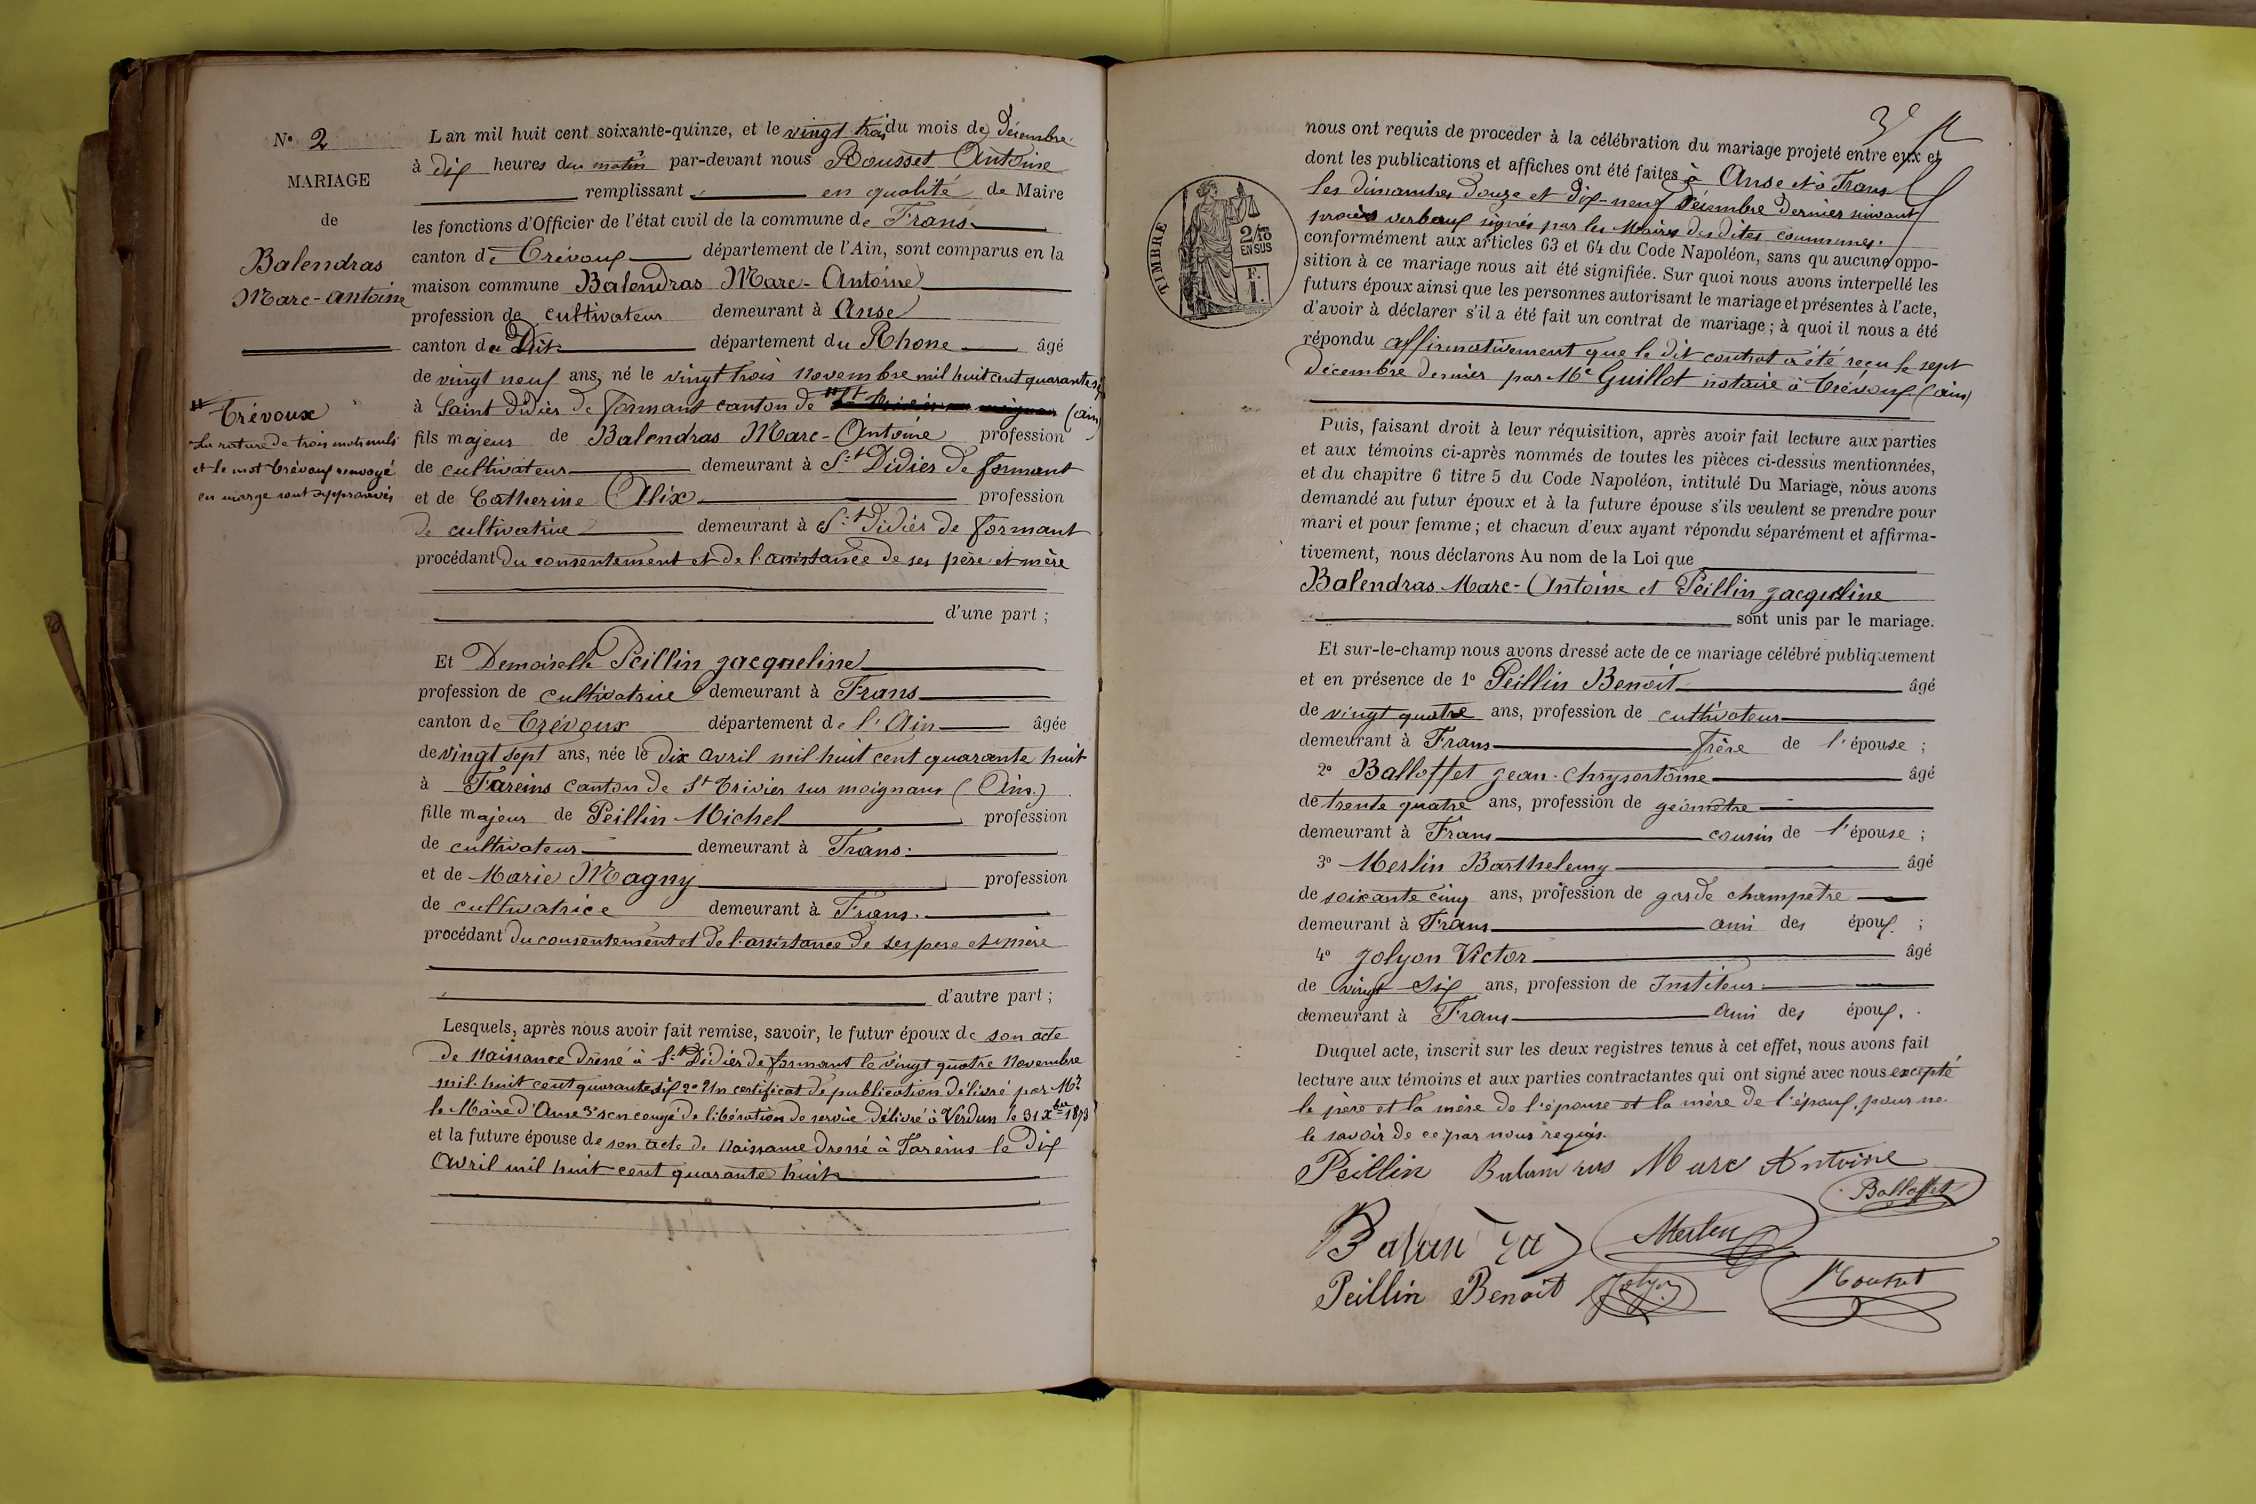 N° 2
MARIAGE
de
Balendras
Marc-antoine
Trévoux
La rature de trois mots nuls
et le mot Trévoux renvoyé
en marge sont approuvés
L'an mil huit cent soixante-quinze, et le vingt trois du mois de Décembre
à dix heures du matin par-devant nous Rousset Antoine
remplissant en qualité de Maire
les fonctions d'Officier de l'état civil de la commune de Frans
canton de Trévoux département de l'Ain, sont comparus en la
maison commune Balendras Marc-Antoine
profession de cultivateur demeurant à Anse
canton du Dit département du Rhone âgé
de vingt neuf ans, né le vingt trois novembre mil huit cent quarante six
à Saint Didier de formant canton de (ain)
fils majeur de Balendras Marc-Antoine profession
de cultivateur demeurant à St Didier de formant
et de Catherine Alix profession
de cultivatrice demeurant à St Didier de formant
procédant du consentement et de l'assistance de ses père et mère
d'une part ;
Et Demoiselle Peillin jacqueline
profession de cultivatrice demeurant à Frans
canton de Trévoux département de l'Ain âgée
de vingt sept ans, née le dix avril mil huit cent quarante huit
à Fareins canton de St Trivier sur moignans (Ain.)
fille majeur de Peillin Michel profession
de cultivateur demeurant à Frans.
et de Marie Magny profession
de cultivatrice demeurant à Frans.
procédant du consentement et de l'assistance de ses pere et mère
d'autre part ;
Lesquels, après nous avoir fait remise, savoir, le futur époux de son acte
de naissance dressé à St Didier de formant le vingt quatre novembre
mil huit cent quarante six 2° Un certificat de publication délivré par Mr
le Maire d'Anse 3° son congé de libération de service délivré à Verdun le 31 Xbre 1873
et la future épouse de son acte de naissance dressé à Fareins le dix
Avril mil huit cent quarante huit
TIMBRE
2/10
EN SUS
F.
1.
nous ont requis de procéder à la célébration du mariage projeté entre eux et
dont les publications et affiches ont été faites à Anse et à Frans
les dimanches douze et dix-neuf Décembre dernier suivant
procès verbaux signés par les Maires des dites communes.
conformément aux articles 63 et 64 du Code Napoléon, sans qu'aucune oppo-
sition à ce mariage nous ait été signifiée. Sur quoi nous avons interpellé les
futurs époux ainsi que les personnes autorisant le mariage et présentes à l'acte,
d'avoir à déclarer s'il a été fait un contrat de mariage ; à quoi il nous a été
répondu affirmativement que le dit contrat a été reçu le sept
décembre dernier par Me Guillot notaire à Trévoux (ain)
Puis, faisant droit à leur réquisition, après avoir fait lecture aux parties
et aux témoins ci-après nommés de toutes les pièces ci-dessus mentionnées,
et du chapitre 6 titre 5 du Code Napoléon, intitulé Du Mariage, nous avons
demandé au futur époux et à la future épouse s'ils veulent se prendre pour
mari et pour femme ; et chacun d'eux ayant répondu séparément et affirma-
tivement, nous déclarons Au nom de la Loi que
Balendras Marc-Antoine et Peillin jacqueline
sont unis par le mariage.
Et sur-le-champ nous avons dressé acte de ce mariage célébré publiquement
et en présence de 1° Peillin Benoit âgé
de vingt quatre ans, profession de cultivateur
demeurant à Frans frère de l'épouse ;
2° Balloffet jean-Chrysostôme âgé
de trente quatre ans, profession de géomètre
demeurant à Frans cousin de l'épouse ;
3° Merlin Barthelemy âgé
de soixante cinq ans, profession de garde champetre
demeurant à Frans ami des époux ;
4° Jolyon Victor âgé
de vingt six ans, profession de Instituteur
demeurant à Frans ami des époux.
Duquel acte, inscrit sur les deux registres tenus à cet effet, nous avons fait
lecture aux témoins et aux parties contractantes qui ont signé avec nous excepté
le père et la mère de l'épouse et la mère de l'époux, pour ne
le savoir de ce par nous requis.
Peillin Marc Antoine
Balloffet
Merlin
Peillin Benoit Jolyon Rousset